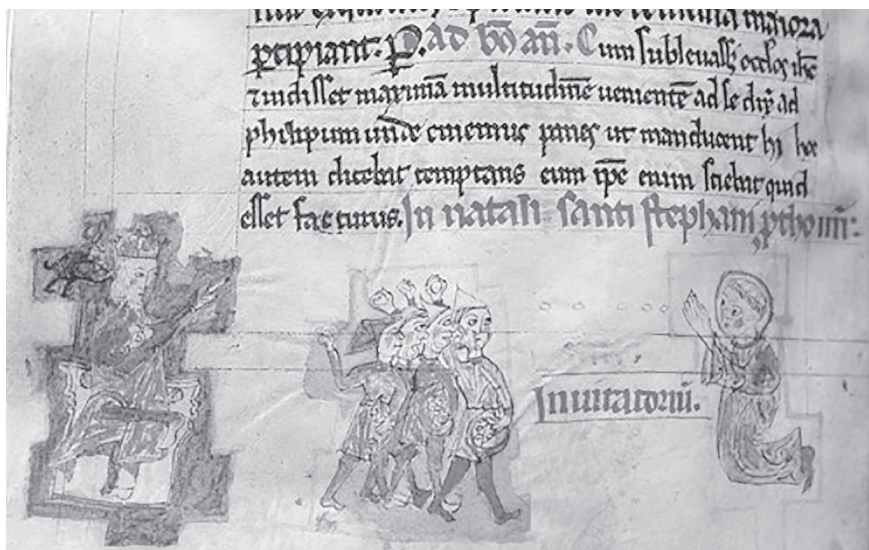 maiora
ꝑcipiant. ad bō añ. Cum subleuass; oculos ihc̄
⁊ uidisset maximā multitudinē uenientē ad se dix̄ ad
philipum unde ememus panes ut manducent hi hoc
autem dicebat temptans eum ip̄e enim sciebat quid
esset facturus. In natali santi stephani
Inuitatoriū.